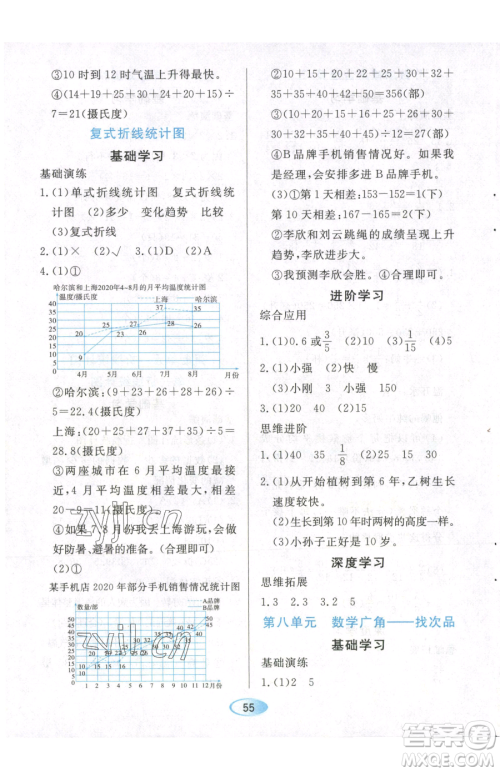 ③10 时到 12 时气温上升得最快。
④(14+15+24+29+30+20+15)÷
7=21(摄氏度)
复式折线统计图
基础学习
基础演练
1.(1)单式折线统计图 复式折线统
计图 (2)多少 变化趋势 比较
(3)复式折线
2.(1)× (2)√ 3.(1)D (2)A
4.(1)①
哈尔滨和上海2020年4-8月的月平均温度统计图
温度/摄氏度
上海
哈尔滨
4月 5月 6月 7月 8月 月份
②哈尔滨:(9+23+26+28+26)÷
5=22.4(摄氏度)
28.8(摄氏度)
③两座城市在 6 月平均温度最接
近,4 月平均温度相差最大,相差
20-9=11(摄氏度)
④如果 7、8 月份我去上海游玩,会做
好防暑、避暑的准备。(合理即可)
(2)①
某手机店 2020 年部分手机销售情况统计图
数量/部
A品牌
B品牌
50
45
40
35
30
25
20
15
10
5
0
1 2 3 4 5 6 7 8 9 10 11 12月份
35=356(部)
④B品牌手机销售情况好。如果我
是经理,会安排多进B品牌手机。
(3)①第 1 天相差:153-152=1(下)
第 10 天相差:167-165=2(下)
②李欣和刘云跳绳的成绩呈现上升
趋势,李欣进步大。
③我推测李欣会胜。(合理即可)
进阶学习
综合应用
1.(1)0.6 或3/5 (2)3 (3)1/15 (4)5
2.(1)①小强 (2)快 慢
(3)小刚 3 小强 150
3.(1)(2)略
思维进阶
1.(1)20 (2)15 35 1/8 (3)40
2.(1)从开始植树到第 6 年,乙树生长
速度较快。
(2)生长到第 10 年时两树的高度一样。
(3)小孙子正好是 10 岁。
深度学习
思维拓展
1.3 2.3 3.5 2
第八单元 数学广角——找次品
基础学习
基础演练
1.(1)2 5
55
zyjl.cn
zyjl.cn
答案圈
MXQE.COM